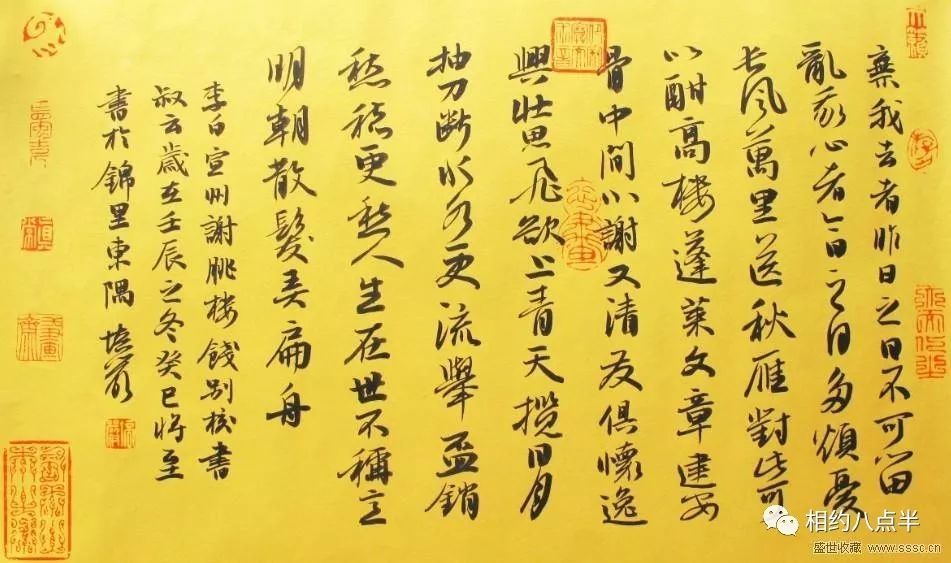 棄我去者昨日之日不可留
亂我心者今日之日多煩憂
长风萬里送秋雁對此可
以酣高楼蓬萊文章建安
骨中間小謝又清发俱懷逸
興壮思飛欲上青天揽日月
抽刀断水水更流舉盃銷
愁愁更愁人生在世不稱意
明朝散髮弄扁舟
李白宣州謝朓楼餞别校書
叔云歲在壬辰之冬癸巳将至
書於錦里東隅
相约八点半
盛世收藏 www.sssc.cn